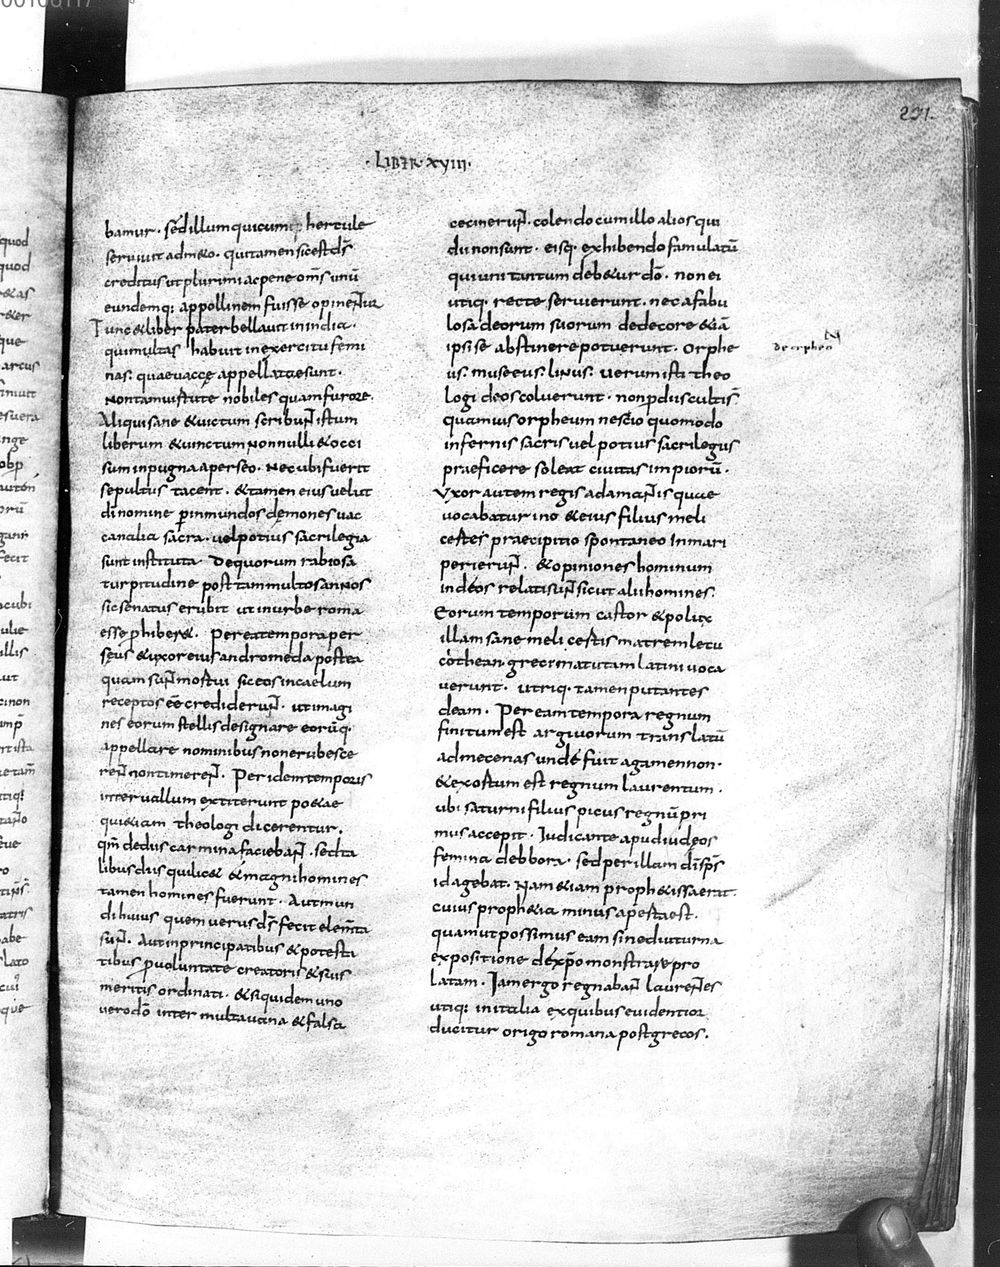 201.
· LIBER · XVIII ·
bamur · sed illum qui cum hercule
serviuit admeto · qui tamen sic est ds̄
creditus ut plurimi ac pene om̄s unū
eundemq; appollinem fuisse opinentur
Tunc & liber pater bellauit in india ·
qui multas habuit in exercitu femi
nas · quae uaccę appellatae sunt ·
Non tam uirtute nobiles quam furore ·
Aliqui sane & uictum scribunt istum
liberum & uinctum Nonnulli & occi
sum in pugna a perseo · Nec ubi fuerit
sepultus tacent · & tamen eius uelut
di nomine p inmundos dęmones uac
canalia sacra · uel potius sacrilegia
sunt instituta · De quorum rabiosa
turpitudine post tam multos annos
sic senatus erubit ut in urbe roma
esse phiber& · Per ea tempora per
seus & uxor eius andromeda postea
quam sunt mortui sic eos in caelum
receptos ee crediderunt · ut imagi
nes eorum stellis designare eorūq·
appellare nominibus non erubesce
rent non timerent · Per idem temporis
interuallum extiterunt po&ae
qui&iam theologi dicerentur ·
qm̄ de diis carmina faciebant · sed ta
libus diis qui lic& & magni homines
tamen homines fuerunt · Aut mun
di huius quem uerus ds̄ fecit elem̄ta
sunt · Aut in principatibus & potesta
tibus p uoluntate creatoris & suis
meritis ordinati · & si quidem uno
uero dō inter multa uana & falsa
cecinerunt · colendo cum illo alios qui
dii non sunt · eisq· exhibendo famulatū
qui uni tantum deb&ur dō · non ei
utiq· recte seruierunt · nec a fabu
losa deorum suorum dedecore &iā
ipsi se abstinere potuerunt · Orphe
us · museus · linus · uerum isti theo
logi deos coluerunt · non p diis culti s
quamuis orpheum nescio quomodo
infernis sacris uel potius sacrilegus
praeficere soleat ciuitas impiorū ·
Vxor autem regis adamantis quae
uocabatur ino & eius filius meli
cestes praecipitio spontaneo in mari
perierunt · & opiniones hominum
in deos relati sunt sicut alii homines
Eorum temporum castor & polux
illam sane meli cestis matrem leu
cothean greci matutam latini uoca
uerunt · utriq· tamen putantes
deam · Per ea tempora regnum
finitum est argiuorum translatū
ad mecenas unde fuit agamennon ·
& exortum est regnum laurentum ·
ubi saturni filius picus regnū pri
mus accepit · Iudicante apud iudęos
femina debbora · sed per illam di sp̄s
id agebat · Nam & iam proph&issa erat ·
cuius proph&ia minus aperta est ·
quam ut possimus eam sine diuturna
expositione de xp̄o monstrare pro
latam · Iam ergo regnabant laurentes
utiq· in italia ex quibus euidentior
ducitur origo romana post grecos ·
de orpheo